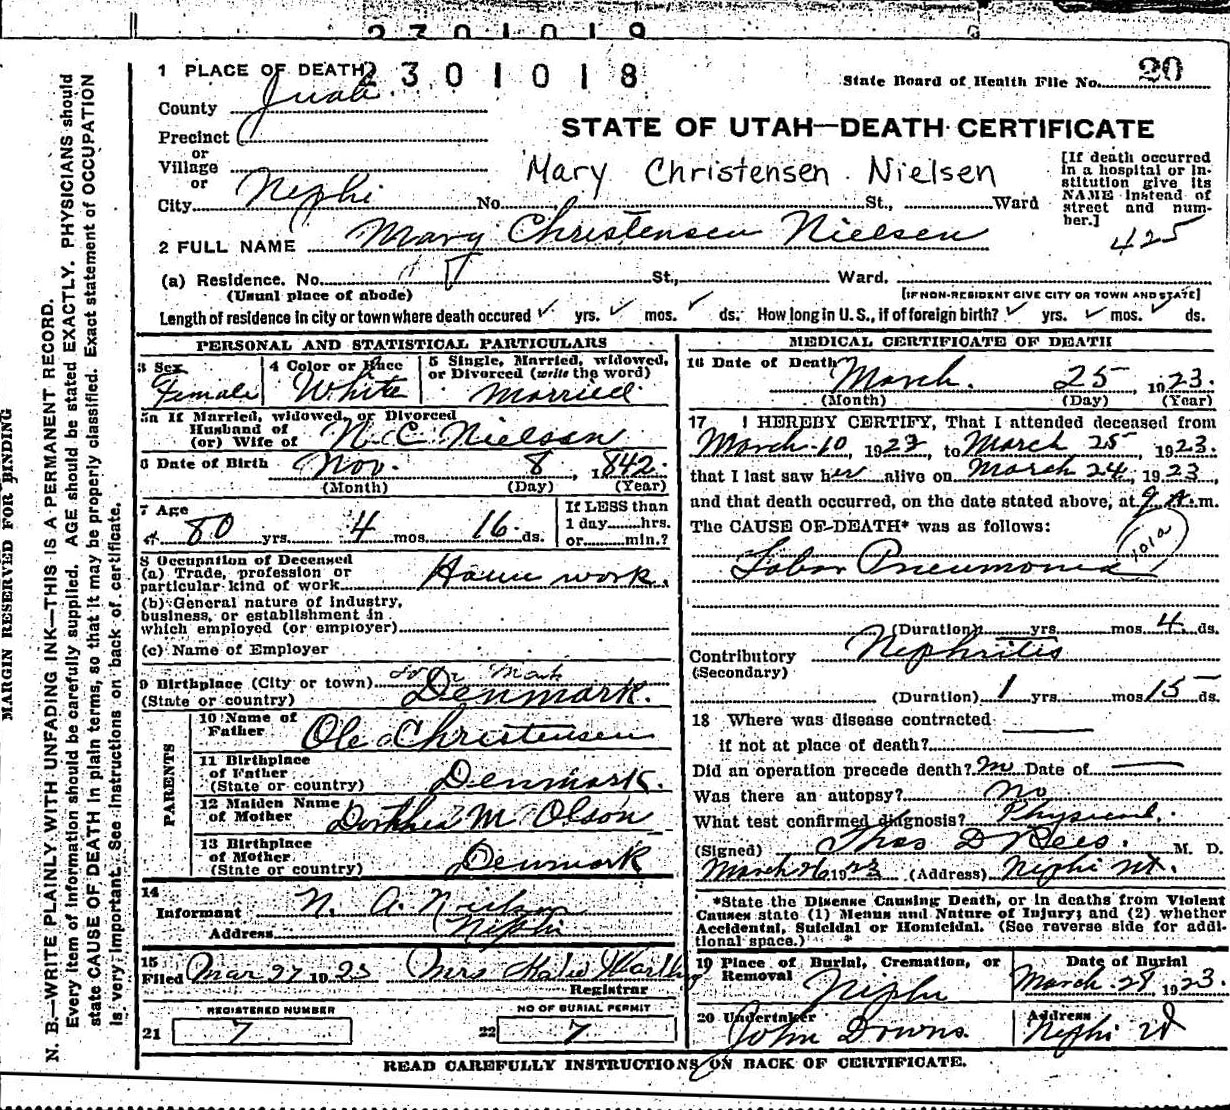 2301019
1 PLACE OF DEATH 2301018
State Board of Health File No. 20
County Juab
Precinct
or
Village
or
City Nephi No. St., Ward
STATE OF UTAH—DEATH CERTIFICATE
Mary Christensen Nielsen
[If death occurred
in a hospital or in-
stitution give its
NAME instead of
street and num-
ber.]
425
2 FULL NAME Mary Christensen Nielsen
(a) Residence. No. St., Ward.
(Usual place of abode)
[IF NON-RESIDENT GIVE CITY OR TOWN AND STATE]
Length of residence in city or town where death occured ✓ yrs. ✓ mos. ✓ ds. How long in U.S., if of foreign birth? ✓ yrs. ✓ mos. ✓ ds.
PERSONAL AND STATISTICAL PARTICULARS
3 Sex
Female
4 Color or Race
White
5 Single, Married, widowed,
or Divorced (write the word)
Married
5a If Married, widowed, or Divorced
Husband of
(or) Wife of N. C. Nielsen
6 Date of Birth Nov. 8, 1842.
(Month) (Day) (Year)
7 Age
80 yrs. 4 mos. 16 ds.
If LESS than
1 day......hrs.
or......min.?
8 Occupation of Deceased
(a) Trade, profession or
particular kind of work House work.
(b) General nature of industry,
business, or establishment in
which employed (or employer)
(c) Name of Employer
9 Birthplace (City or town)
(State or country) Denmark.
PARENTS
10 Name of
Father Ole Christensen
11 Birthplace
of Father
(State or country) Denmark.
12 Maiden Name
of Mother Dorthea M Olson
13 Birthplace
of Mother
(State or country) Denmark
14
Informant N. A. Nielson
Address Nephi
15
Filed Mar 27 1923 Mrs
Registrar
REGISTERED NUMBER
21 7
NO OF BURIAL PERMIT
22 7
MEDICAL CERTIFICATE OF DEATH
16 Date of Death March. 25, 1923.
(Month) (Day) (Year)
17 I HEREBY CERTIFY, That I attended deceased from
March 10, 1923, to March 25, 1923.
that I last saw her alive on March 24, 1923,
and that death occurred, on the date stated above, at 9 A.m.
The CAUSE OF DEATH* was as follows:
Lobar Pneumonia 101a
(Duration) yrs. mos. 4 ds.
Contributory Nephritis
(Secondary)
(Duration) 1 yrs. mos. 15 ds.
18 Where was disease contracted
if not at place of death?
Did an operation precede death? no Date of
Was there an autopsy? No
What test confirmed diagnosis? Physical.
(Signed) Thos D Rees. M. D.
March 26 1923 (Address) Nephi Ut.
*State the Disease Causing Death, or in deaths from Violent
Causes state (1) Menus and Nature of Injury; and (2) whether
Accidental, Suicidal or Homicidal. (See reverse side for addi-
tional space.) *
19 Place of Burial, Cremation, or
Removal Nephi
Date of Burial
March 28, 1923.
20 Undertaker
John Downs.
Address
Nephi Ut
READ CAREFULLY INSTRUCTIONS ON BACK OF CERTIFICATE.
MARGIN RESERVED FOR BINDING
N. B.—WRITE PLAINLY, WITH UNFADING INK—THIS IS A PERMANENT RECORD.
Every item of information should be carefully supplied. AGE should be stated EXACTLY. PHYSICIANS should
state CAUSE OF DEATH in plain terms, so that it may be properly classified. Exact statement of OCCUPATION
is very important. See instructions on back of certificate.